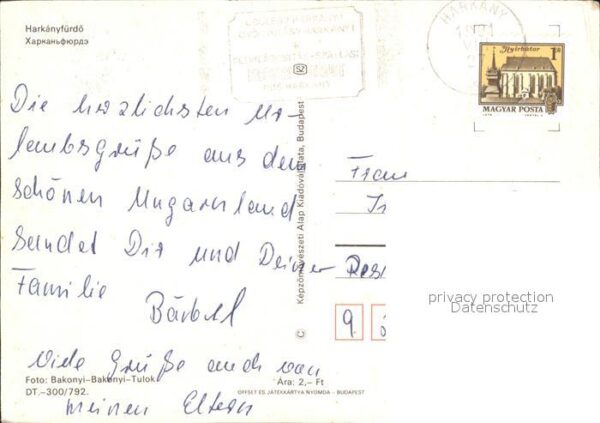 Harkányfürdő
Харканьфюрдэ
HARKÁNY
Nyírbátor
1 Ft
MAGYAR POSTA
Die herzlichsten Ur-
laubsgrüße aus dem
schönen Ungarnland
sendet Dir und Deiner
Familie
Bärbel
Viele Grüße auch von
meinen Eltern
Foto: Bakonyi–Bakonyi–Tulok
DT.–300/792.
Ára: 2,– Ft
OFFSET ÉS JÁTÉKKÁRTYA NYOMDA – BUDAPEST
© Képzőművészeti Alap Kiadóvállalata, Budapest
SZ
Frau
9
privacy protection
Datenschutz